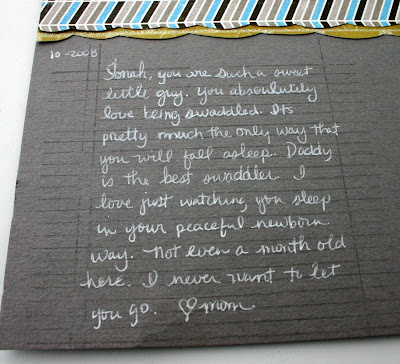 10-2008
Jonah, you are such a sweet
little guy. you absolutely
love being swaddled. Its
pretty much the only way that
you will fall asleep. Daddy
is the best swaddler. I
love just watching you sleep
in your peaceful newborn
way. not even a month old
here. I never want to let
you go. ♡ mom